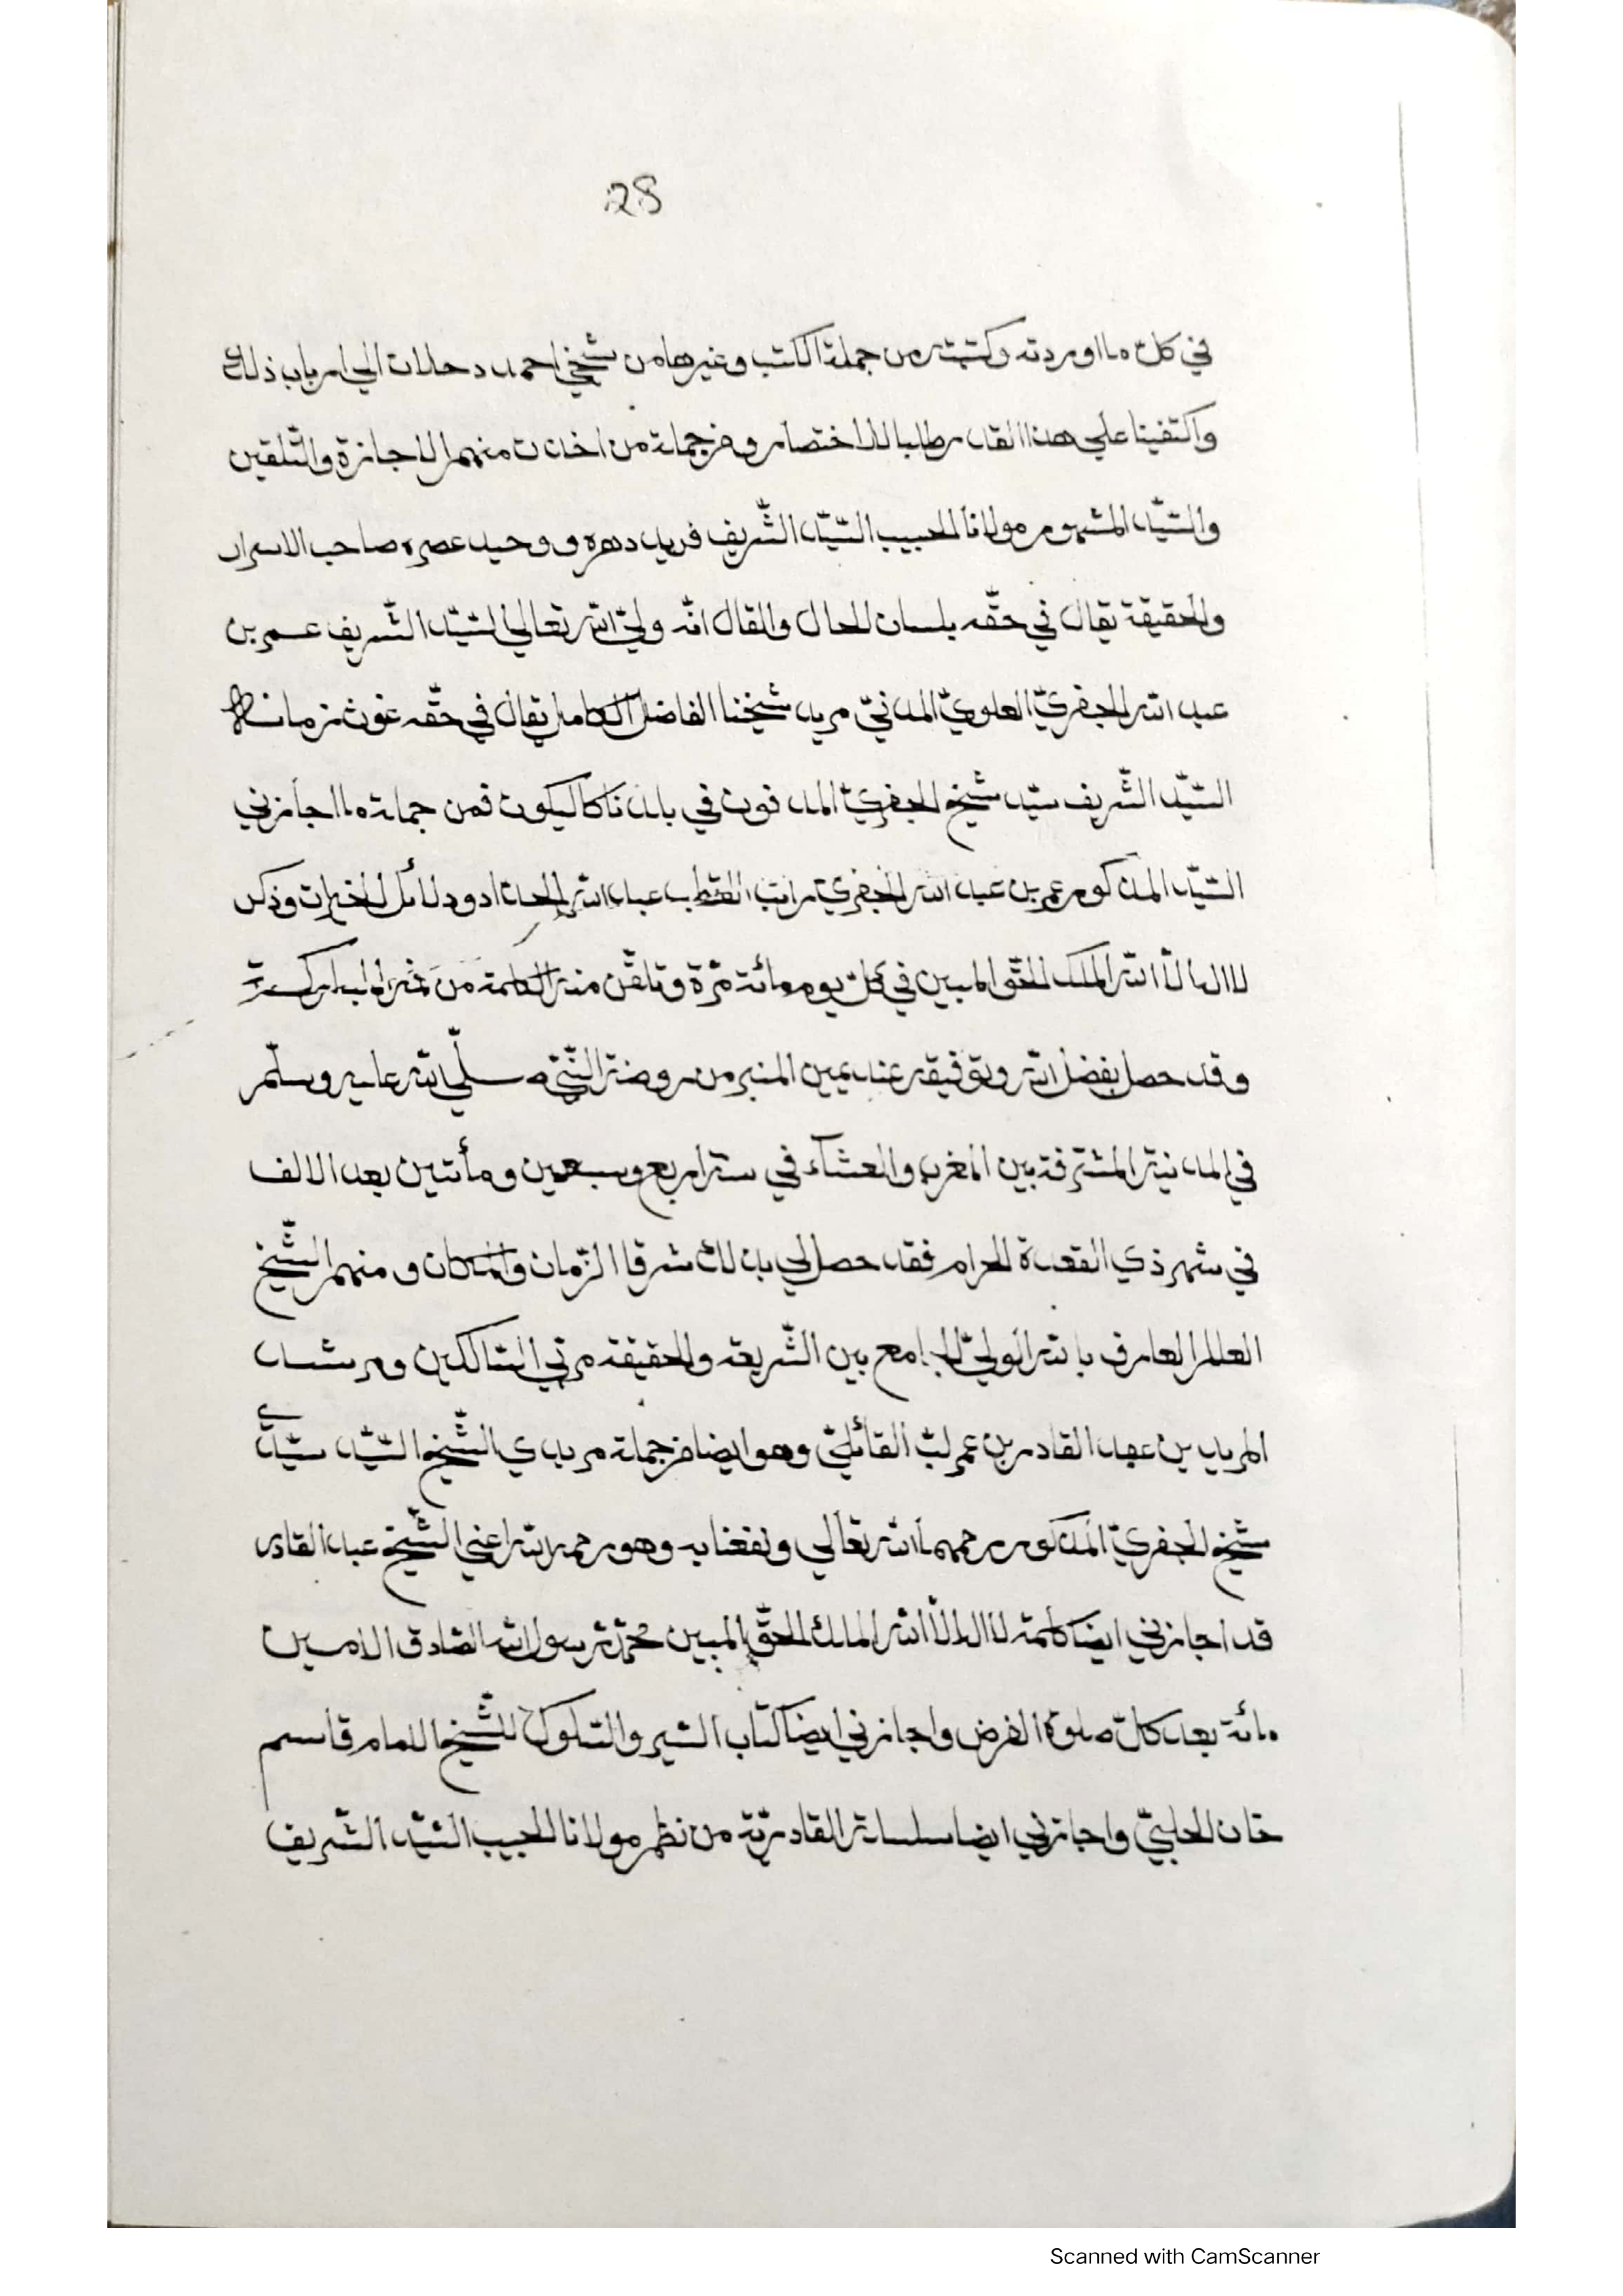 28
في كلّ ما اوردته وكتبته من جملة الكتب وغيرها من شيخي احمد دحلان الي ارباب ذلك
واكتفينا علي هذا القدر طلبا للاختصار ومن جملة من اخذت منهم الاجازة والتّلقين
والسّيّد المشهور مولانا الحبيب السّيّد الشّريف فريد دهره ووحيد عصره صاحب الاسرار
والحقيقة يقال في حقّه بلسان الحال والقال انّه وليّ الله تعالي السّيّد الشّريف عمر بن
عبد الله الجفريّ العلويّ المدنيّ مريد شيخنا الفاضل الكامل يقال في حقّه غوث زمانه
السّيّد الشّريف سيّد شيخ الجفريّ المدفون في بلدنا كاليكوت فمن جملة ما اجازني
السّيّد المذكور عمر بن عبد الله الجفريّ راتب القطب عبد الله الحداد ودلائل الخيرات وذكر
لا اله الّا الله الملك الحقّ المبين في كلّ يوم مائة مرّة وتلقّن منه الكلمة من فمه المباركة
وقد حصل بفضل الله وتوفيقه عند يمين المنبر من روضة النّبيّ صلّي الله عليه وسلّم
في المدينة المشرّفة بين المغرب والعشاء في سنة اربع وسبعين ومأتين بعد الالف
في شهر ذي القعدة الحرام فقد حصل لي بذلك شرفا الزّمان والمكان ومنهم الشّيخ
العالم العارف بالله الوليّ الجامع بين الشّريعة والحقيقة مربّي السّالكين ومرشد
المريدين عبد القادر بن عمر لبّ القائليّ وهو ايضا من جملة مريدي الشّيخ السّيّد سيّد
شيخ الجفريّ المذكور رحمهما الله تعالي ونفعنا به وهو رحمه الله اعني الشّيخ عبد القادر
قد اجازني ايضا كلمة لا اله الّا الله الملك الحقّ المبين محمّد رسول الله الصّادق الامين
مائة بعد كلّ صلوة الفرض واجازني ايضا كتاب السّير والسّلوك للشّيخ الامام قاسم
خان الحلبيّ واجازني ايضا سلسلة القادريّة من نظم مولانا الحبيب السّيّد الشّريف
Scanned with CamScanner